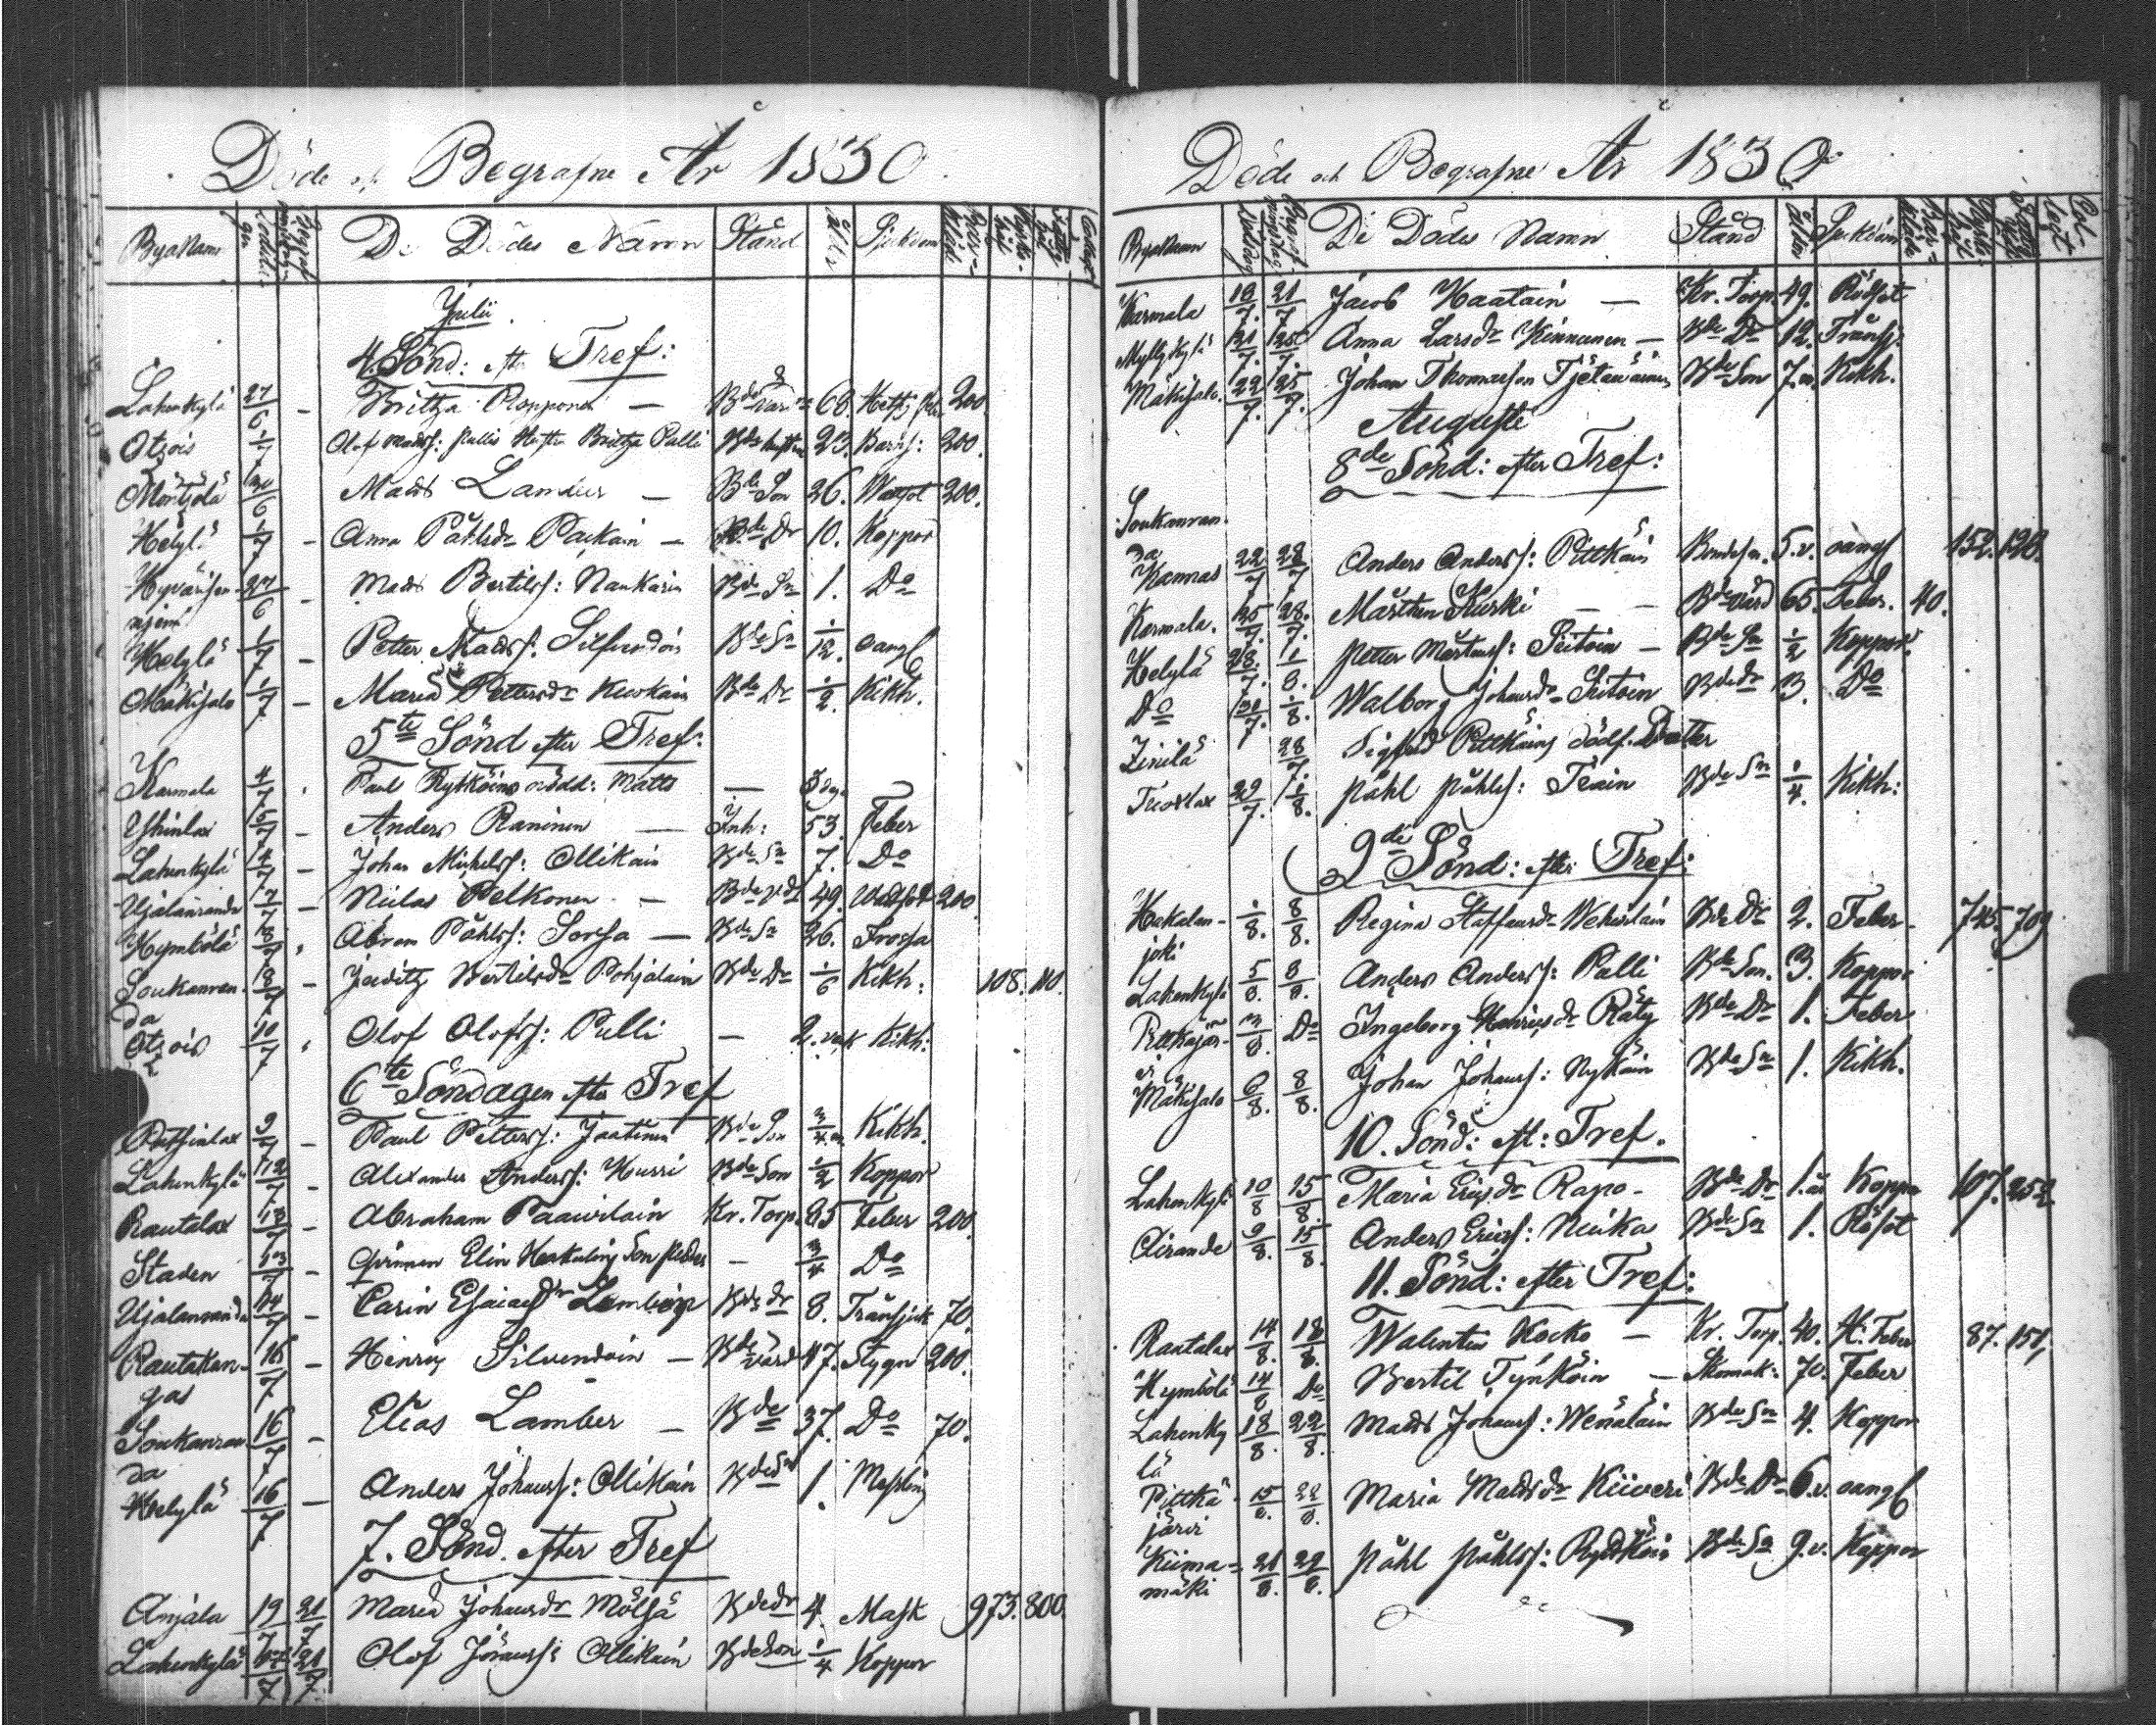 Döde och Begrafne År 1830.
ByaNamn De Dödes Namn Stånd Ålder Sjukdom
Julii
4. Sönd: efter Tref:
Lahenkylä 27/6 - Brittza Ropponen — Bde 68. 200.
Otsois 1/7 Olof Madss: Pullis Hustru Brittza Pulli Bde hustru 23. Barns: 200.
Möntsölä 30/6 Mads Lamber — Bde Son 26. Wattsot 200.
Helyl: 1/7 - Anna Påhlsdr Packain — Bde Dr 10. Koppor
Hyvärisenniemi 27/6 - Mads Bertilss: Naukarin Bde Sn 1. Do
Helylä 1/7 - Petter Madss: Silfvendoin Bde Sn 1/12. oangf
Mäkisalo 1/7 - Maria Pettersdr Kuokain Bde Dr 1/2. Kikh.
5te Sönd efter Tref:
Karmala 4/7 Paul Rytköins nödd: Matts — dag.
Yhinlax 5/7 - Anders Raninen — Inh: 53. Feber
Lahenkylä 4/7 - Johan Michelss: Ollikain Bde Sn 7. Do
Ujalanranda 7/7 - Niclas Pelkonen — 49. Wattsot 200
Hymbölä 8/7 Abram Påhlss: Sorsa — Bde Sn 26. Frossa
Soukanranda 8/7 - Juditz Bertilsdr Pohjalain Bde Dr 1/6 Kikh: 108. 110.
Otsois 10/7 Olof Olofss: Pulli — 2. veck Kikh:
6te Söndagen efter Tref
Putsinlax 9/7 - Paul Petterss: Jaatinen Bde Son 3/4 m Kikh.
Lahenkylä 12/7 - Alexander Anderss: Hurri Bde Son 1/2 Koppor
Rautalax 13/7 - Abraham Paawilain Kr. Torp. 85 Feber 200.
Staden 13/7 - Qvinnan Elin Hakuling Son Petter — 3/4 Do
Ujalanranda 14/7 - Carin Esaiaedr Lamberg Bde dr 8. Trånsjuk 70.
Rautakangas 16/7 - Henrig Silvendoin — Bde värd 47. Stygn 200.
Soukanranda 16/7 - Elias Lamber — Bde 37. Do 70.
Helylä 16/7 - Anders Johanss: Ollikain Bde Sn 1. Messling
7. Sönd. efter Tref
Anjala 19/7 21/7 Maria Johansdr Mölsä Bde dr 4. Mask 973. 800.
Lahenkylä 21/7 Olof Jöranss: Ollikain Bde Son 1/4 Koppor
Döde och Begrafne År 1830
ByaNamn De Dödes Namn Stånd Ålder Sjukdom
Karmala 18/7. 21/7 Jacob Haatain — Kr. Torp. 49. Rödsot
Myllykylä 21/7. 25/7. Anna Larsdr Kinnunen — Bde Dr 12. Trånsj.
Mäkisalo. 22/7. 25/7. Johan Thomasson Tjetäwäinen Bde Son 7. m. Kikh.
Augusti
8de Sönd: efter Tref:
Soukanranda 22/7 28/7 Anders Anderss: Pittkäin Bondeson. 5. v. oangf 152. 120.
Kannas
Karmala. 25/7. 28/7. Mårthen Kurki — — Bde värd 65. Feber. 40.
Helylä 28/7. 1/8. Petter Mårtenss: Pitoin — Bde Sn 1/2 Koppor.
Do 30/7. 1/8. Walborg Johansdr Pitoin Bde dr 3. Do
28/7. Sigfrid Pittkäins dödf. Dotter
29/7. 1/8. Påhl Påhlss: Teain Bde Sn 1/4. Kikh:
9de Sönd: efter Tref:
Hakalanjoki 1/8. 8/8. Regina Staffansdr Weherlain Bde Dr 2. Feber 745. 709
Lahenkylä 5/8 8/8. Anders Anderss: Pulli Bde Son. 3. Koppor
Pittkäjärvi 3/8. Do Ingeborg Henrigsdr Räty Bde Dr 1. Feber
Mäkisalo 6/8. 8/8. Johan Johanss: Nykäin Bde Sn 1. Kikh.
10. Sönd: eft: Tref.
Lahenkylä 10/8 15/8. Maria Ericsdr Rapo - Bde Dr 1. år Koppor 107. 252
Airanda 9/8. 15/8. Anders Ericss: Niuka Bde Sn 1. Rösot
11. Sönd: efter Tref:
Rautalax 14/8. 18/8. Walentin Kocko — Kr. Torp. 40. H: Feber 87. 151,
Hymbölä 14/8 Do Bertil Tynköin — Skomak: 70. Feber
Lahenkylä 18/8. 22/8. Mads Johanss: Wenäläin Bde Sn 4. Koppor
Pittkäjärvi 15/8. 22/8. Maria Madsdr Kiiveri Bde Dr 6. v. oangf
Kiimamäki 21/8. 22/8. Påhl Påhlss: Rytköin Bde Sn 9. v. Koppor